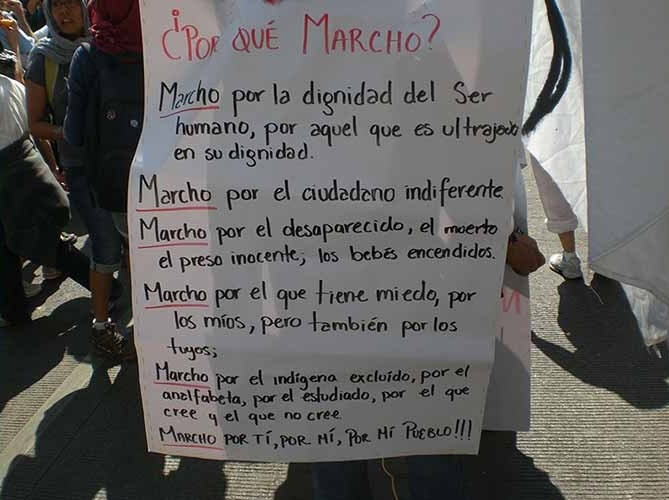 ¿Por qué Marcho?
Marcho por la dignidad del Ser
humano, por aquel que es ultrajado
en su dignidad.
Marcho por el ciudadano indiferente
Marcho por el desaparecido, el muerto
el preso inocente; los bebés encendidos.
Marcho por el que tiene miedo, por
los míos, pero también por los
tuyos;
Marcho por el indígena excluído, por el
analfabeta, por el estudiado, por el que
cree y el que no cree.
MARCHO POR TÍ, POR MÍ, POR MI PUEBLO!!!